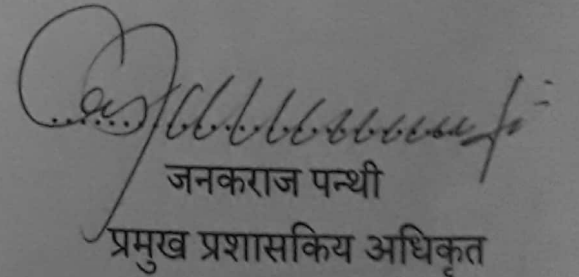 जनकराज पन्थी
प्रमुख प्रशासकिय अधिकृत